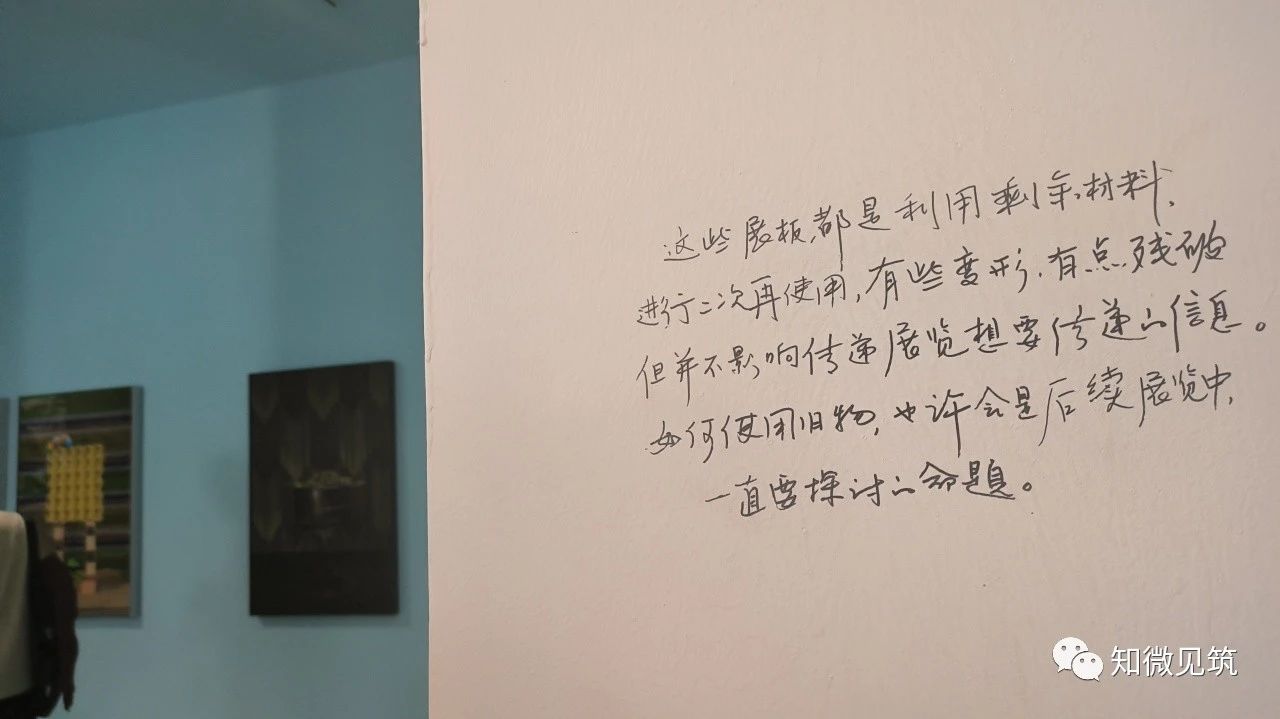 这些展板,都是利用剩余材料,
进行二次再使用,有些变形,有点残破
但并不影响传递展览想要传递的信息。
如何使用旧物,也许会是后续展览中,
一直要探讨的命题。
知微见筑